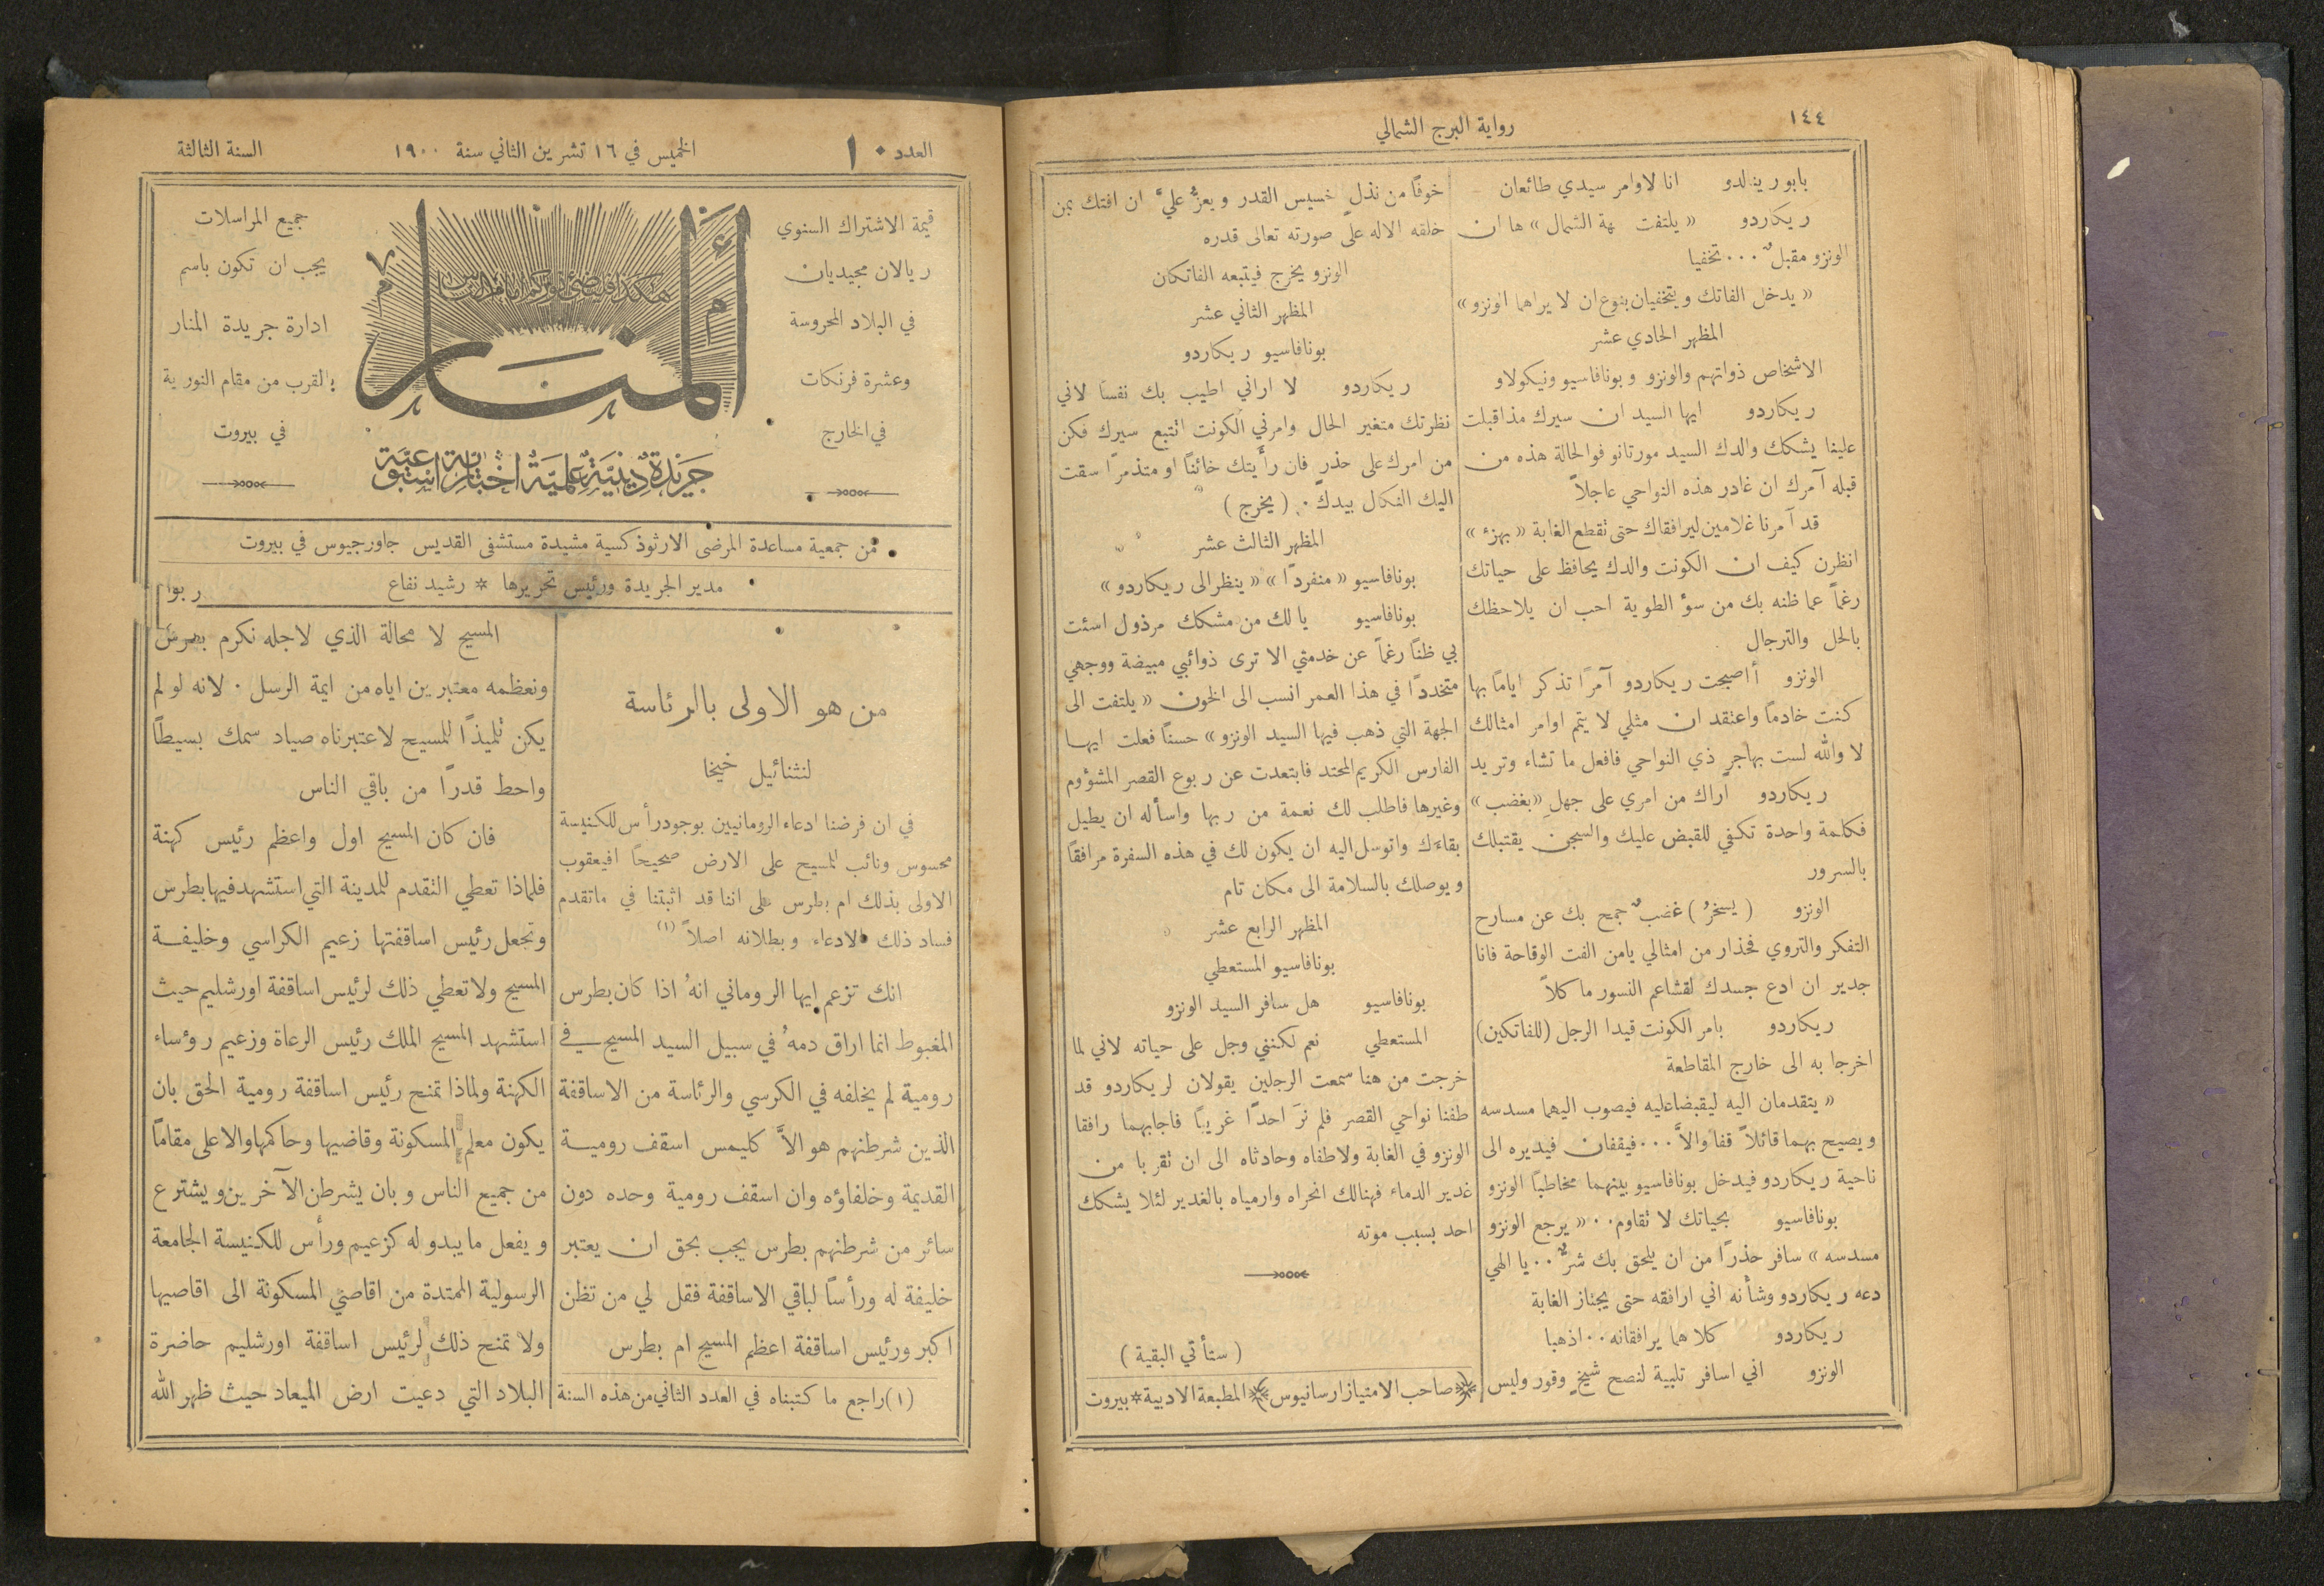 ١٤٤
رواية البرج الشمالي
بابو رينلدو انا لاوامر سيدي طائعان
ريكاردو « يلتفت جهة الشمال » ها ان
الونزو مقبلٌ ... تخفيا
« يدخل الفاتك ويتخفيان بنوع ان لا يراهما الونزو »
المظهر الحادي عشر
الاشخاص ذواتهم والونزو وبونافاسيو ونيكولاو
ريكاردو ايها السيد ان سيرك مذ اقبلت
علينا يشكك والدك السيد مورتانو فوالحالة هذه من
قبله آمرك ان غادر هذه النواحي عاجلاً
قد آمرنا غلامين ليرافقاك حتى تقطع الغابة « بهزء »
انظرن كيف ان الكونت والدك يحافظ على حياتك
رغماً عما ظنه بك من سوٴ الطوية احب ان يلاحظك
بالحل والترحال
الونزو أاصبحت ريكاردو آمرًا تذكر ايامًا بها
كنت خادماً واعتقد ان مثلي لا يتم اوامر امثالك
لا والله لست بهاجرٍ ذي النواحي فافعل ما تشاء وتريد
ريكاردو اراك من امري على جهلٍ « بغضب »
فكلمة واحدة تكفي للقبض عليك والسجن يقتبلك
بالسرور
الونزو ( يسخرُ ) غضبٌ جمح بك عن مسارح
التفكر والتروي فحذار من امثالي يامن الفت الوقاحة فانا
جدير ان ادع جسدك لقشاعم النسور ماكلاً
ريكاردو بامر الكونت قيدا الرجل (للفاتكين)
اخرجا به الى خارج المقاطعة
« يتقدمان اليه ليقبضا عليه فيصوب اليهما مسدسه
ويصيح بهما قائلاً قفا والاَّ ... فيقفان فيديره الى
ناحية ريكاردو فيدخل بونافاسيو بينهما مخاطبًا الونزو
بونافاسيو بحياتك لا تقاوم .. « يرجع الونزو
مسدسه » سافر حذرًا من ان يلحق بك شرٌّ .. يا الهي
دعه ريكاردو وشأنه اني ارافقه حتى يجتاز الغابة
ريكاردو كلاهما يرافقانه .. اذهبا
الونزو اني اسافر تلبية لنصح شيخٍ وقور وليس
خوفًا من نذلٍ خسيس القدر ويعزُّ عليَّ ان افتك بمن
خلقه الاله على صورته تعالى قدره
الونزو يخرج فيتبعه الفاتكان
المظهر الثاني عشر
بونافاسيو ريكاردو
ريكاردو لا اراني اطيب بك نفسًا لاني
نظرتك متغير الحال وامرني الكونت اتتبع سيرك فكن
من امرك على حذرٍ فان رأَيتك خائنًا او متذمرًا سقت
اليك النكال بيدك . ( يخرج )
المظهر الثالث عشر
بونافاسيو « منفردًا » « ينظر الى ريكاردو »
بونافاسيو يا لك من مشكك مرذول اسئت
بي ظنًا رغماً عن خدمتي الا ترى ذوائبي مبيضة ووجهي
متخددًا في هذا العمر انسب الى الخون « يلتفت الى
الجهة التي ذهب فيها السيد الونزو » حسنًا فعلت ايها
الفارس الكريم المحتد فابتعدت عن ربوع القصر المشؤوم
وغيرها فاطلب لك نعمة من ربها واسأله ان يطيل
بقاءَك واتوسل اليه ان يكون لك في هذه السفرة مرافقًا
ويوصلك بالسلامة الى مكان تام
المظهر الرابع عشر
بونافاسيو المستعطي
بونافاسيو هل سافر السيد الونزو
المستعطي نعم لكنني وجل على حياته لاني لما
خرجت من هنا سمعت الرجلين يقولان لريكاردو قد
طفنا نواحي القصر فلم نرَ احدًا غريبًا فاجابهما رافقا
الونزو في الغابة ولاطفاه وحادثاه الى ان تقربا من
غدير الدماء فهنالك انحراه وارمياه بالغدير لئلا يشكك
احد بسبب موته
( ستأتي البقية )
صاحب الامتياز ارسانيوس المطبعة الادبية * بيروت
العدد ١٠
الخميس في ١٦ تشرين الثاني سنة ١٩٠٠
السنة الثالثة
قيمة الاشتراك السنوي
ريالان مجيديان
في البلاد المحروسة
وعشرة فرنكات
في الخارج
هكذا فليضئ نوركم امام الناس
المنار
جريدة دينية علمية اخبارية اسبوعية
جميع المراسلات
يجب ان تكون باسم
ادارة جريدة المنار
بالقرب من مقام النورية
في بيروت
من جمعية مساعدة المرضى الارثوذكسية مشيدة مستشفى القديس جاورجيوس في بيروت
مدير الجريدة ورئيس تحريرها * رشيد نفاع
من هو الاولى بالرئاسة
لنثنائيل خيخا
في ان فرضنا ادعاء الرومانيين بوجود رأس للكنيسة
محسوس ونائب للمسيح على الارض صحيحًا افيعقوب
الاولى بذلك ام بطرس على اننا قد اثبتنا في ماتقدم
فساد ذلك الادعاء وبطلانه اصلاً (١)
انك تزعم ايها الروماني انهُ اذا كان بطرس
المغبوط انما اراق دمهُ في سبيل السيد المسيح في
رومية لم يخلفه في الكرسي والرئاسة من الاساقفة
الذين شرطنهم هو الاَّ كليمس اسقف رومية
القديمة وخلفاؤه وان اسقف رومية وحده دون
سائر من شرطنهم بطرس يجب بحق ان يعتبر
خليفة له ورأسًا لباقي الاساقفة فقل لي من تظن
اكبر ورئيس اساقفة اعظم المسيح ام بطرس
(١) راجع ما كتبناه في العدد الثاني من هذه السنة
المسيح لا محالة الذي لاجله نكرم بطرس
ونعظمه معتبرين اياه من ايمة الرسل . لانه لو لم
يكن تلميذًا للمسيح لاعتبرناه صياد سمك بسيطًا
واحط قدرًا من باقي الناس
فان كان المسيح اول واعظم رئيس كهنة
فلماذا تعطي التقدم للمدينة التي استشهد فيها بطرس
وتجعل رئيس اساقفتها زعيم الكراسي وخليفة
المسيح ولا تعطي ذلك لرئيس اساقفة اورشليم حيث
استشهد المسيح الملك رئيس الرعاة وزعيم روٴساء
الكهنة ولماذا تمنح رئيس اساقفة رومية الحق بان
يكون معلم المسكونة وقاضيها وحاكمها والاعلى مقامًا
من جميع الناس وبان يشرطن الآخرين ويشترع
ويفعل ما يبدو له كزعيم ورأس للكنيسة الجامعة
الرسولية الممتدة من اقاصي المسكونة الى اقاصيها
ولا تمنح ذلك لرئيس اساقفة اورشليم حاضرة
البلاد التي دعيت ارض الميعاد حيث ظهر الله